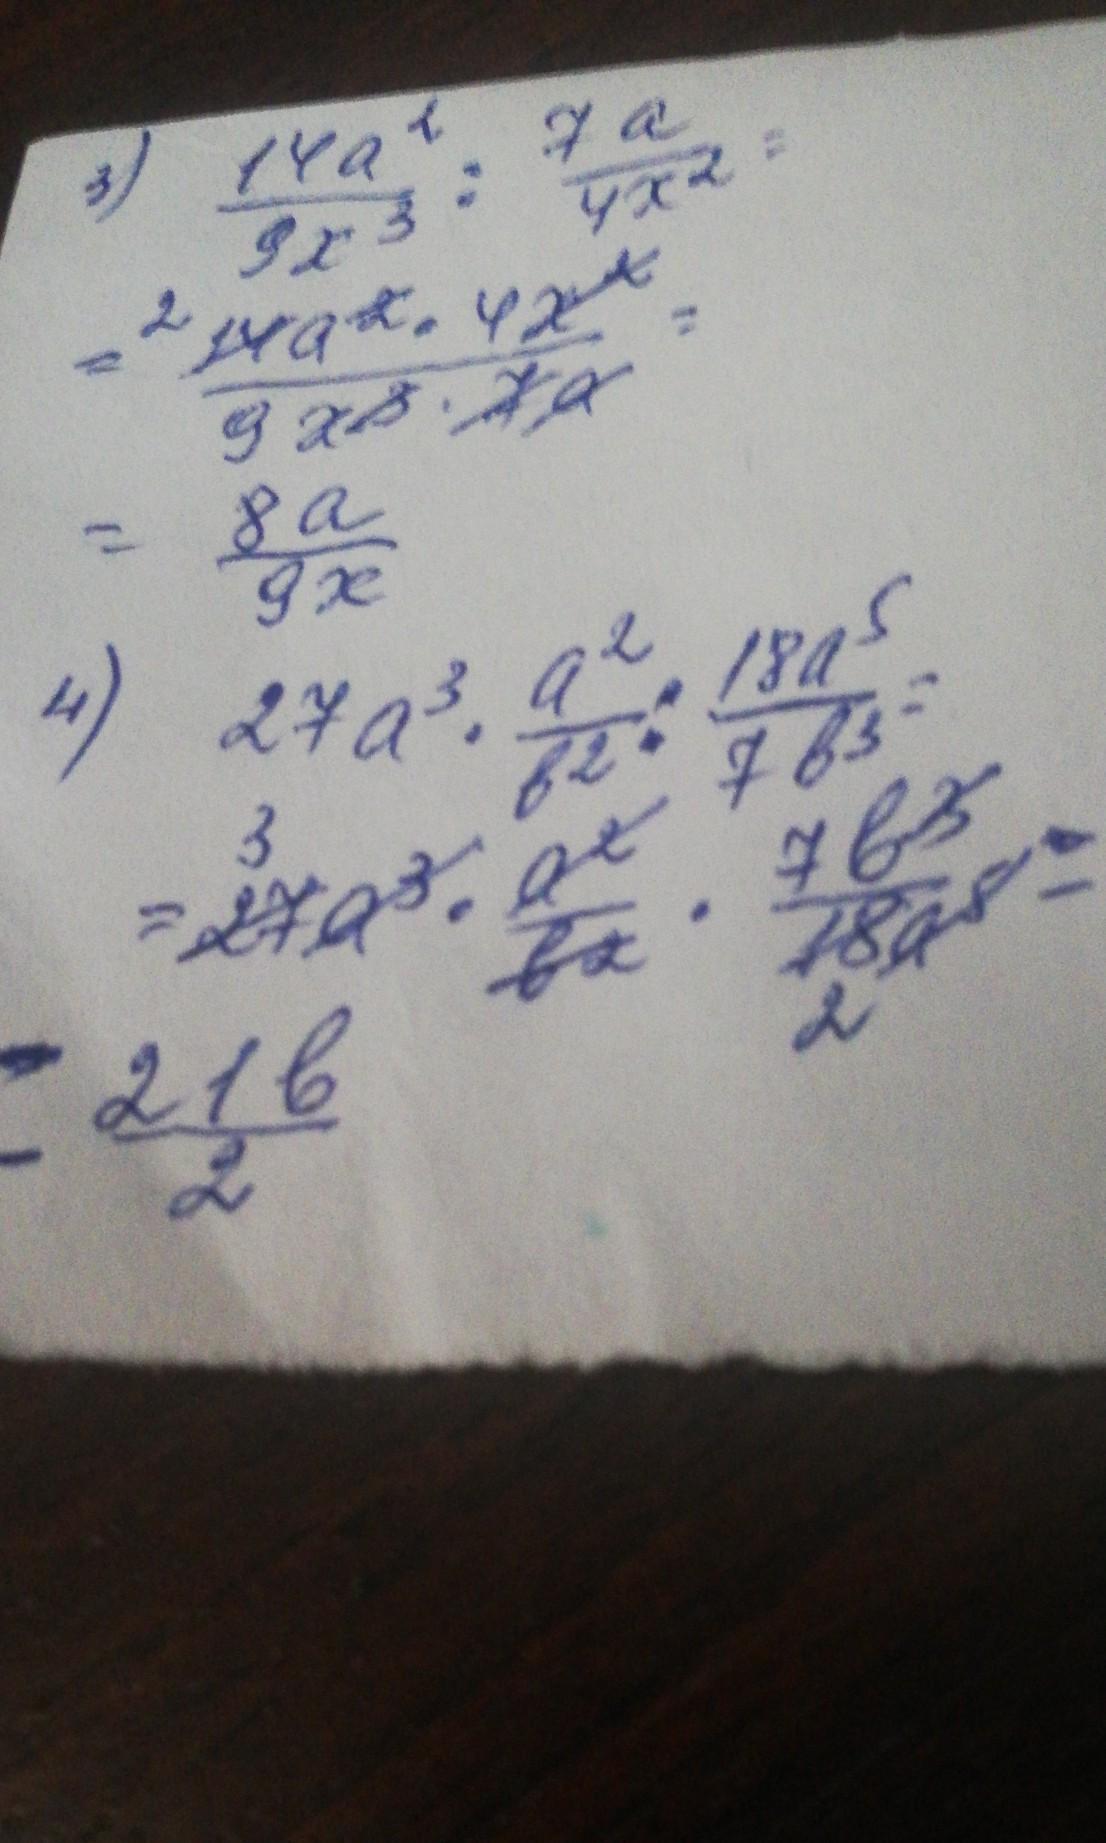 3) 14a²/9x³ : 7a/4x² =
= ² 14a² · 4x²/9x³ · 7a =
= 8a/9x
4) 27a³ · a²/b² : 18a⁵/7b³ =
= ³ 27a³ · a²/b² · 7b³/18a⁵ ₂ =
= 21b/2